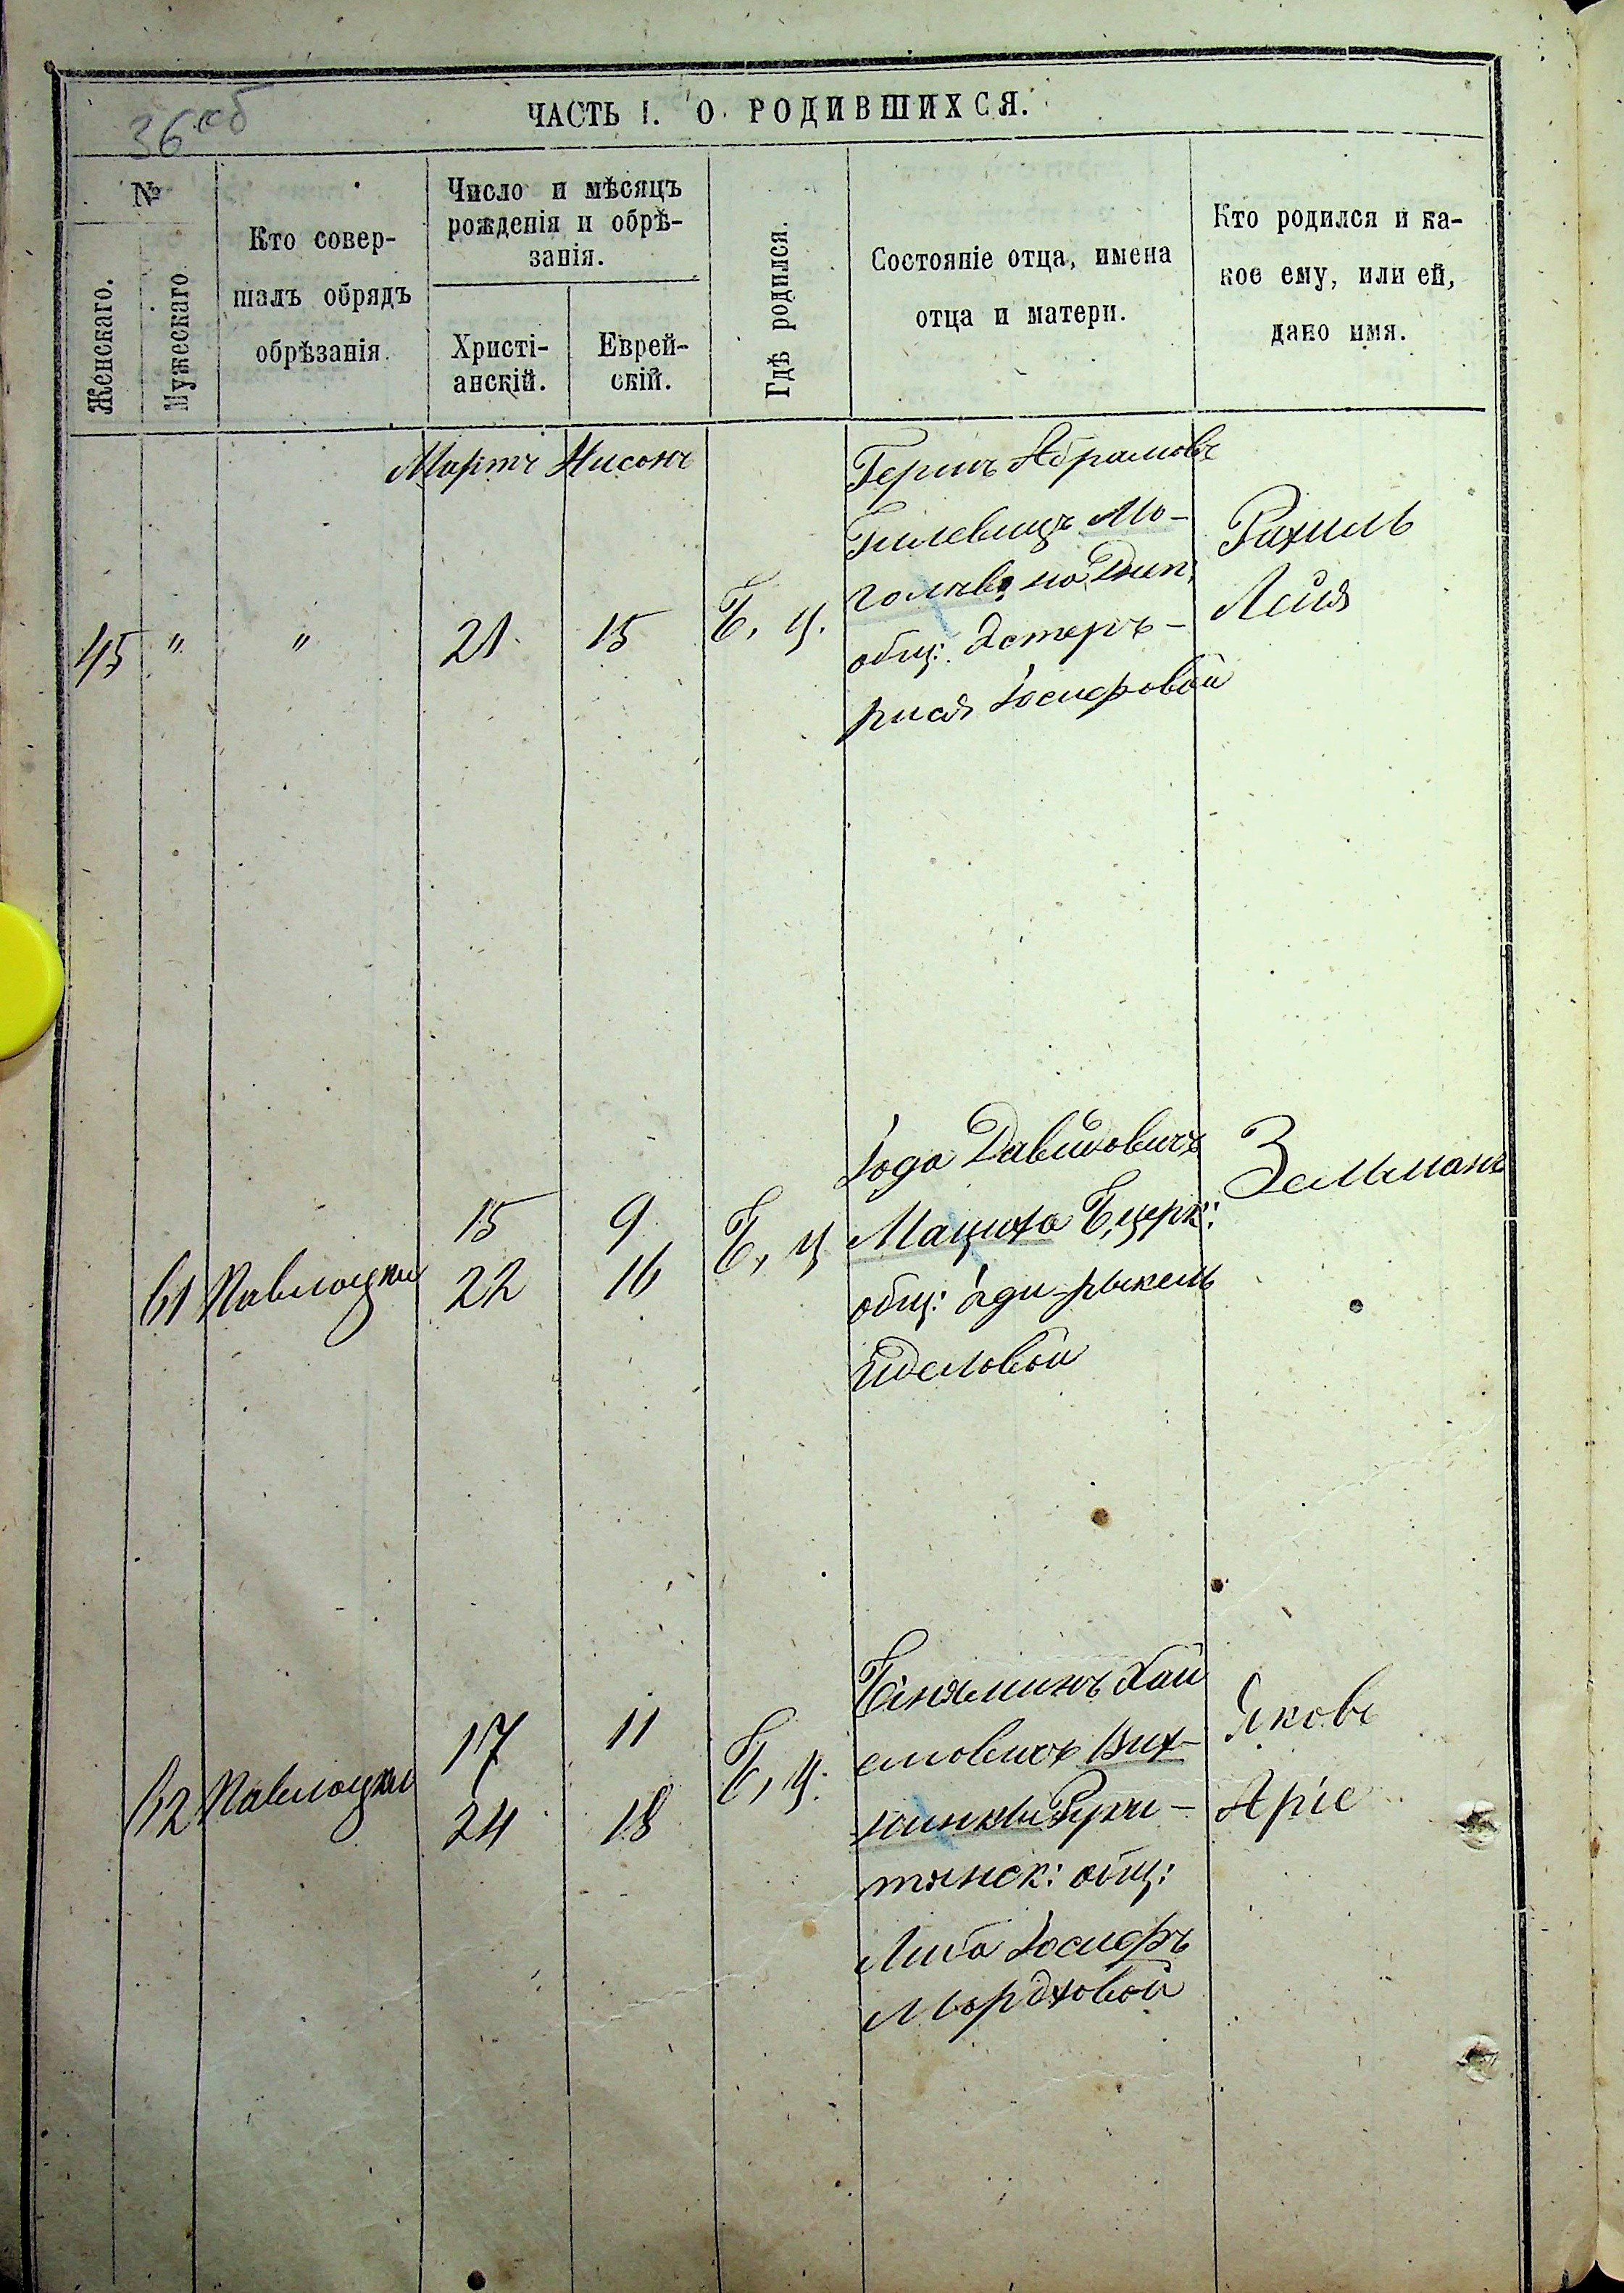 36 об
ЧАСТЬ I. О РОДИВШИХСЯ.
№
Женскаго.
Мужескаго
Кто совер-
шалъ обрядъ
обрѣзанія.
Число и мѣсяцъ
рожденія и обрѣ-
занія.
Христі-
анскій.
Еврей-
скій.
Гдѣ родился.
Состояніе отца, имена
отца и матери.
Кто родился и ка-
кое ему, или ей,
дано имя.
Мартъ Нисонъ
45 " " 21 15 Б, ц.
Гершъ Абрамовъ
Гилевичъ Мо-
общ: Эстеръ-
Іосифовой
Рахиль
Лейя
61 Паволоцкій
15 9
22 16
Б, ц
Іода Давидовичъ
Мацюха Б, церк:
общ:
Иделовой
Зельманъ
62 Паволоцкій
17 11
24 18
Б, ц.
Биняминъ Хаи
мовичъ
тянск: общ:
Либа Іосифъ
Мордховой
Яковъ
Аріе